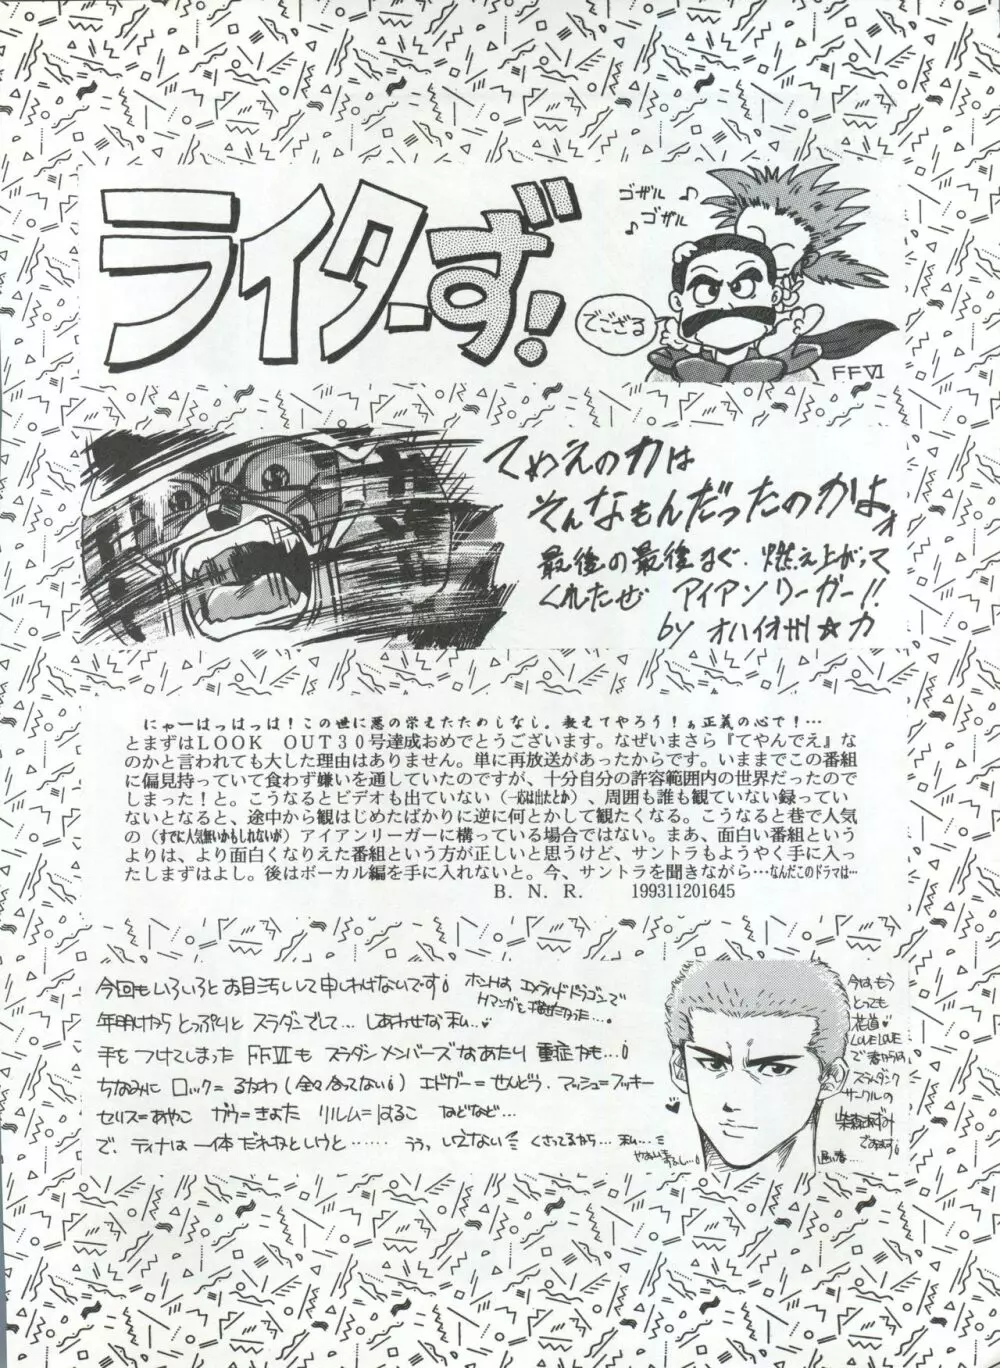 ライターず!
ゴザル♪
♪ゴザル
でござる
FFVI
てめえの力は
そんなもんだったのかよォ
最後の最後まで、燃え上がって
くれたぜ アイアンリーガー!!
by オハイオ州☆力
にゃーはっはっは!この世に悪の栄えたためしなし。教えてやろう!ぁ正義の心で!…
とまずはLOOK OUT30号達成おめでとうございます。なぜいまさら『てやんでえ』な
のかと言われても大した理由はありません。単に再放送があったからです。いままでこの番組
に偏見持っていて食わず嫌いを通していたのですが、十分自分の許容範囲内の世界だったので
しまった!と。こうなるとビデオも出ていない(一応は出たとか)、周囲も誰も観ていない録ってい
ないとなると、途中から観はじめたばかりに逆に何とかして観たくなる。こうなると巷で人気
の(すでに人気無いかもしれないが)アイアンリーガーに構っている場合ではない。まあ、面白い番組という
よりは、より面白くなりえた番組という方が正しいと思うけど、サントラもようやく手に入っ
たしまずはよし。後はボーカル編を手に入れないと。今、サントラを聞きながら…なんだこのドラマは…
B.N.R. 199311201645
今回もいろいろとお目汚しして申しわけないです!
ホントは エメラルドドラゴンで
マンガを描きたかった…
年明けから とっぷりと スラダンでして… しあわせな私…♥
手をつけてしまった FFVIも スラダンメンバーズなあたり 重症かも…!
ちなみに ロック=るかわ(全々合ってない!) エドガー=せんどう、マッシュ=フッキー
セリス=あやこ ガウ=きよた リルム=はるこ などなど…
で、ティナは一体だれかといけと…… うぅっ しょえない くさってるから… 私…
今はもう
とっても
花道♥
LOVELOVE
スラムダンク
サークルの